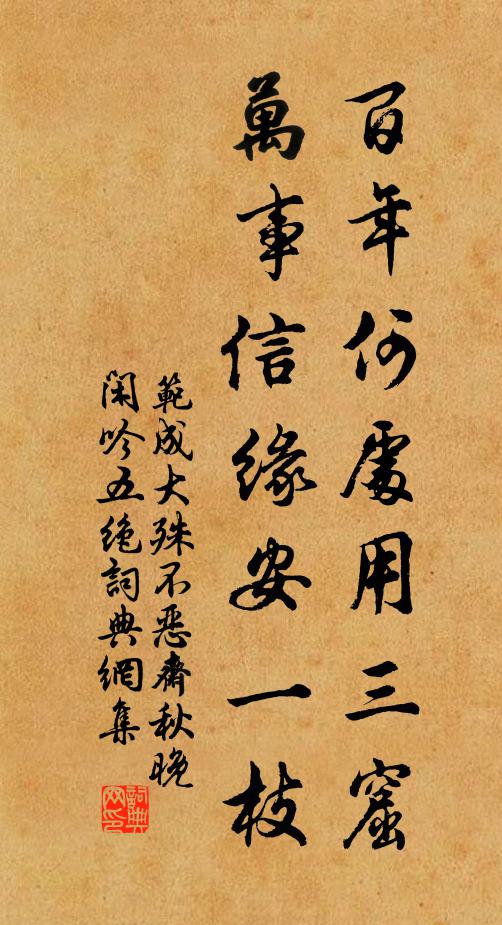 百年何處用三窟
萬事信緣安一枝
範成大殊不惡齋秋晚
閑吟五絕詞典網集
詞典網印